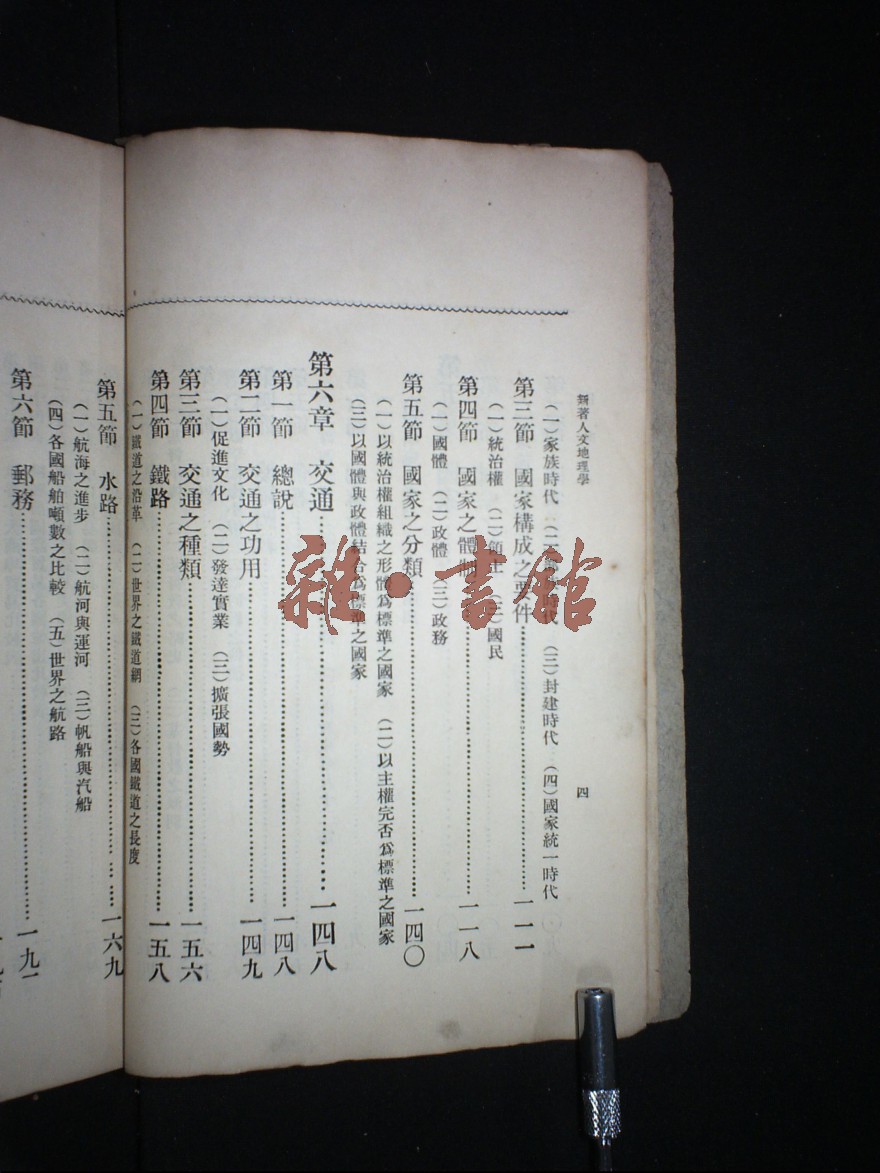 新著人文地理學
四
(一)家族時代 (二)
時代 (三)封建時代 (四)國家統一時代
第三節 國家構成之要件……一一一
(一)統治權 (二)領土 (三)國民
第四節 國家之體制……一一八
(一)國體 (二)政體 (三)政務
第五節 國家之分類……一四〇
(一)以統治權組織之形體爲標準之國家 (二)以主權完否爲標準之國家
(三)以國體與政體結合爲標準之國家
第六章 交通……一四八
第一節 總說……一四八
第二節 交通之功用……一四九
(一)促進文化 (二)發達實業 (三)擴張國勢
第三節 交通之種類……一五六
第四節 鐵路……一五八
(一)鐵道之沿革 (二)世界之鐵道網 (三)各國鐵道之長度
第五節 水路……一六九
(一)航海之進步 (二)航河與運河 (三)帆船與汽船
(四)各國船舶噸數之比較 (五)世界之航路
第六節 郵務……一九一
雜·書館